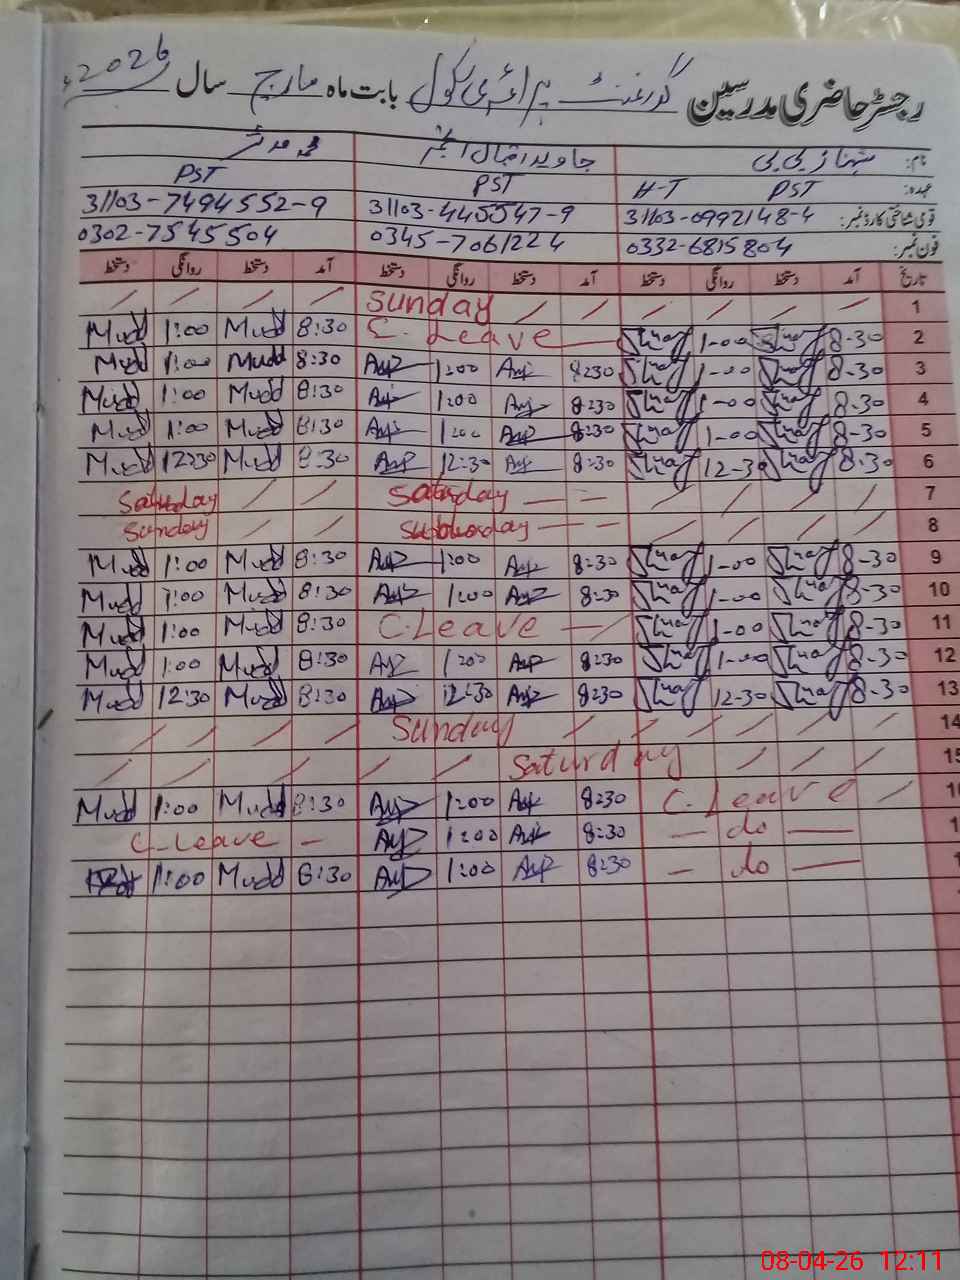 رجسٹر حاضری مدرسین گورنمنٹ پرائمری سکول بابت ماہ مارچ سال 2026ء
نام: شہناز بی بی جاوید اقبال انجم محمد مدثر
عہدہ: H-T PST PST PST
قومی شناختی کارڈ نمبر: 31103-0992148-4 31103-445547-9 31103-7494552-9
فون نمبر: 0332-6815804 0345-7061224 0302-7545504
تاریخ آمد دستخط روانگی دستخط آمد دستخط روانگی دستخط آمد دستخط روانگی دستخط
1 / / / / / / Sunday / / / /
2 8-30 1-00 C. Leave — 8:30 Mudd 1:00 Mudd
3 8-30 1-00 8:30 1:00 8:30 Mudd 1:00 Mudd
4 8-30 1-00 8:30 1:00 8:30 Mudd 1:00 Mudd
5 8-30 1-00 8:30 1:00 8:30 Mudd 1:00 Mudd
6 8-30 12-30 8:30 12:30 8:30 Mudd 12:30 Mudd
7 / / / / Saturday — — Saturday / /
8 / / / / — — Sunday / /
9 8-30 1-00 8:30 1:00 8:30 Mudd 1:00 Mudd
10 8-30 1-00 8:30 1:00 8:30 Mudd 1:00 Mudd
11 8-30 1-00 C. Leave — / 8:30 Mudd 1:00 Mudd
12 8-30 1-00 8:30 1:00 8:30 Mudd 1:00 Mudd
13 8-30 12-30 8:30 12:30 8:30 Mudd 12:30 Mudd
14 / / / / / / Sunday / / / /
15 / / / Saturday / / / / /
C. Leave / 8:30 1:00 8:30 Mudd 1:00 Mudd
— do — 8:30 1:00 C. Leave —
— do — 8:30 1:00 8:30 Mudd 1:00
08-04-26 12:11